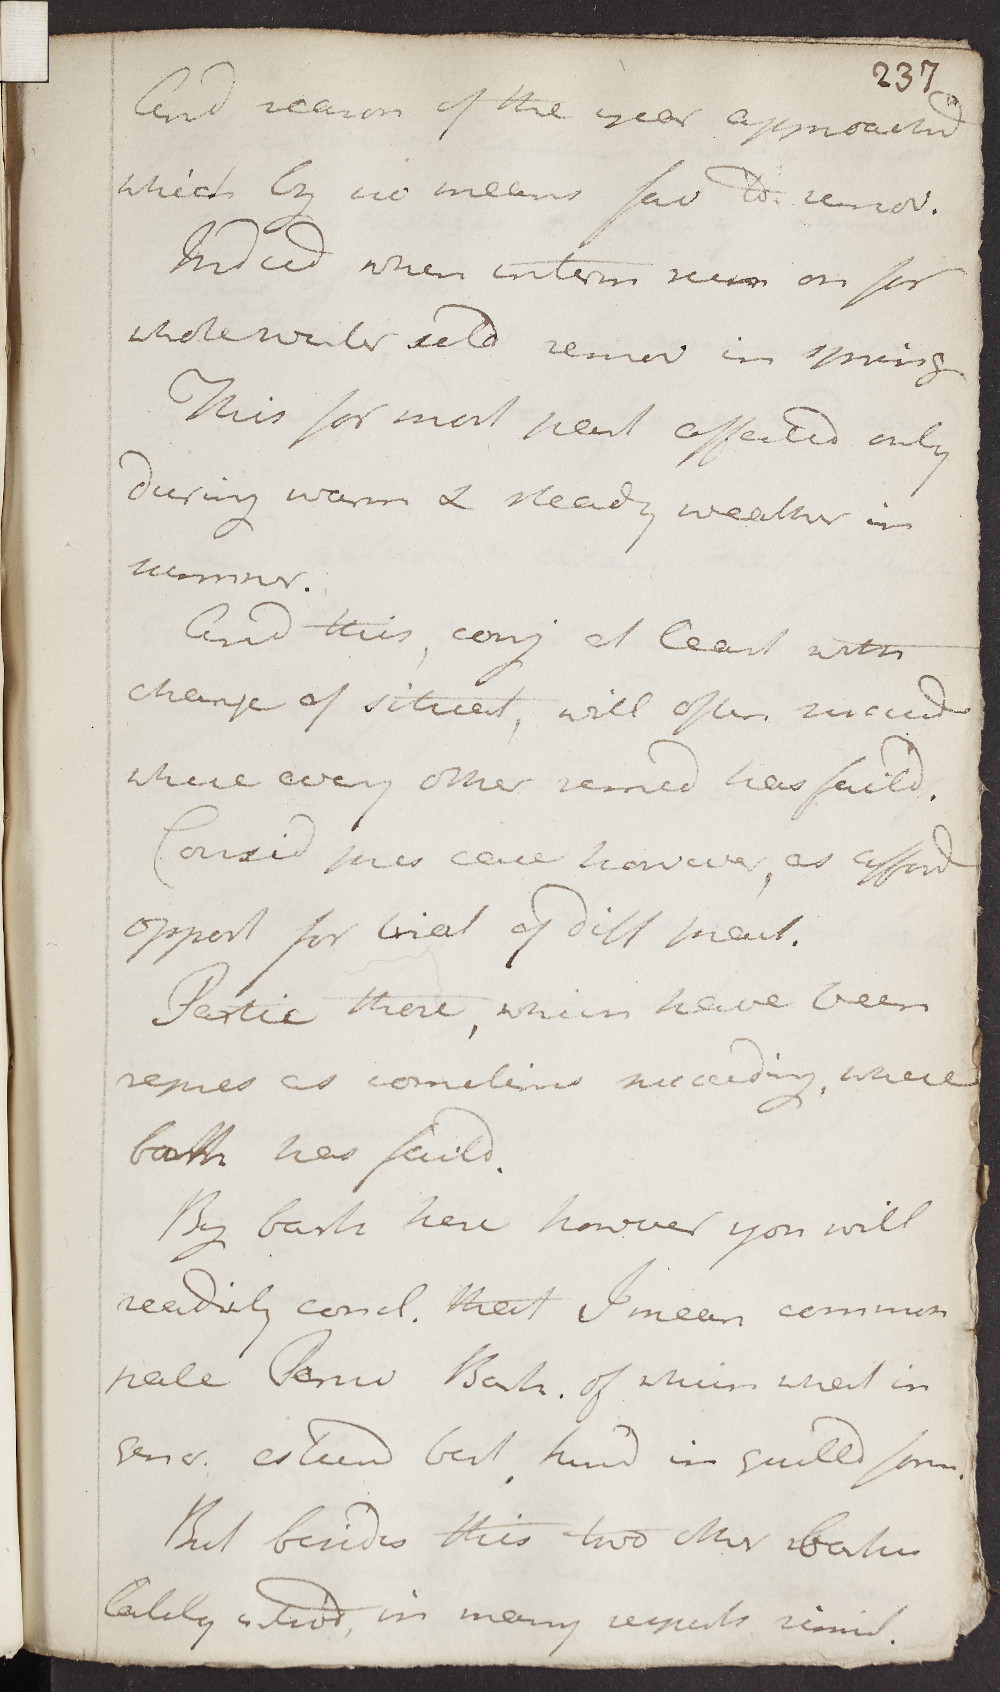 237
And season of the year approachd
which by no means fav to remov.
Indeed when interm runs on for
whole winter seld remov in spring
This for most part affected only
during warm & steady weather in
summer.
And this, conj at least with
change of situat, will often succeed
where every other remed has faild.
Consid pres case however, as afford
opport for trial of diff treat.
Partic those, which have been
repres as sometims succeeding, where
bark has faild.
By bark here however you will
readily concl. that I mean common
pale Peruv Bark. of which what in
gener. esteemd best, in quilld form.
But besides this two other barks
lately introd, in many respects simil.